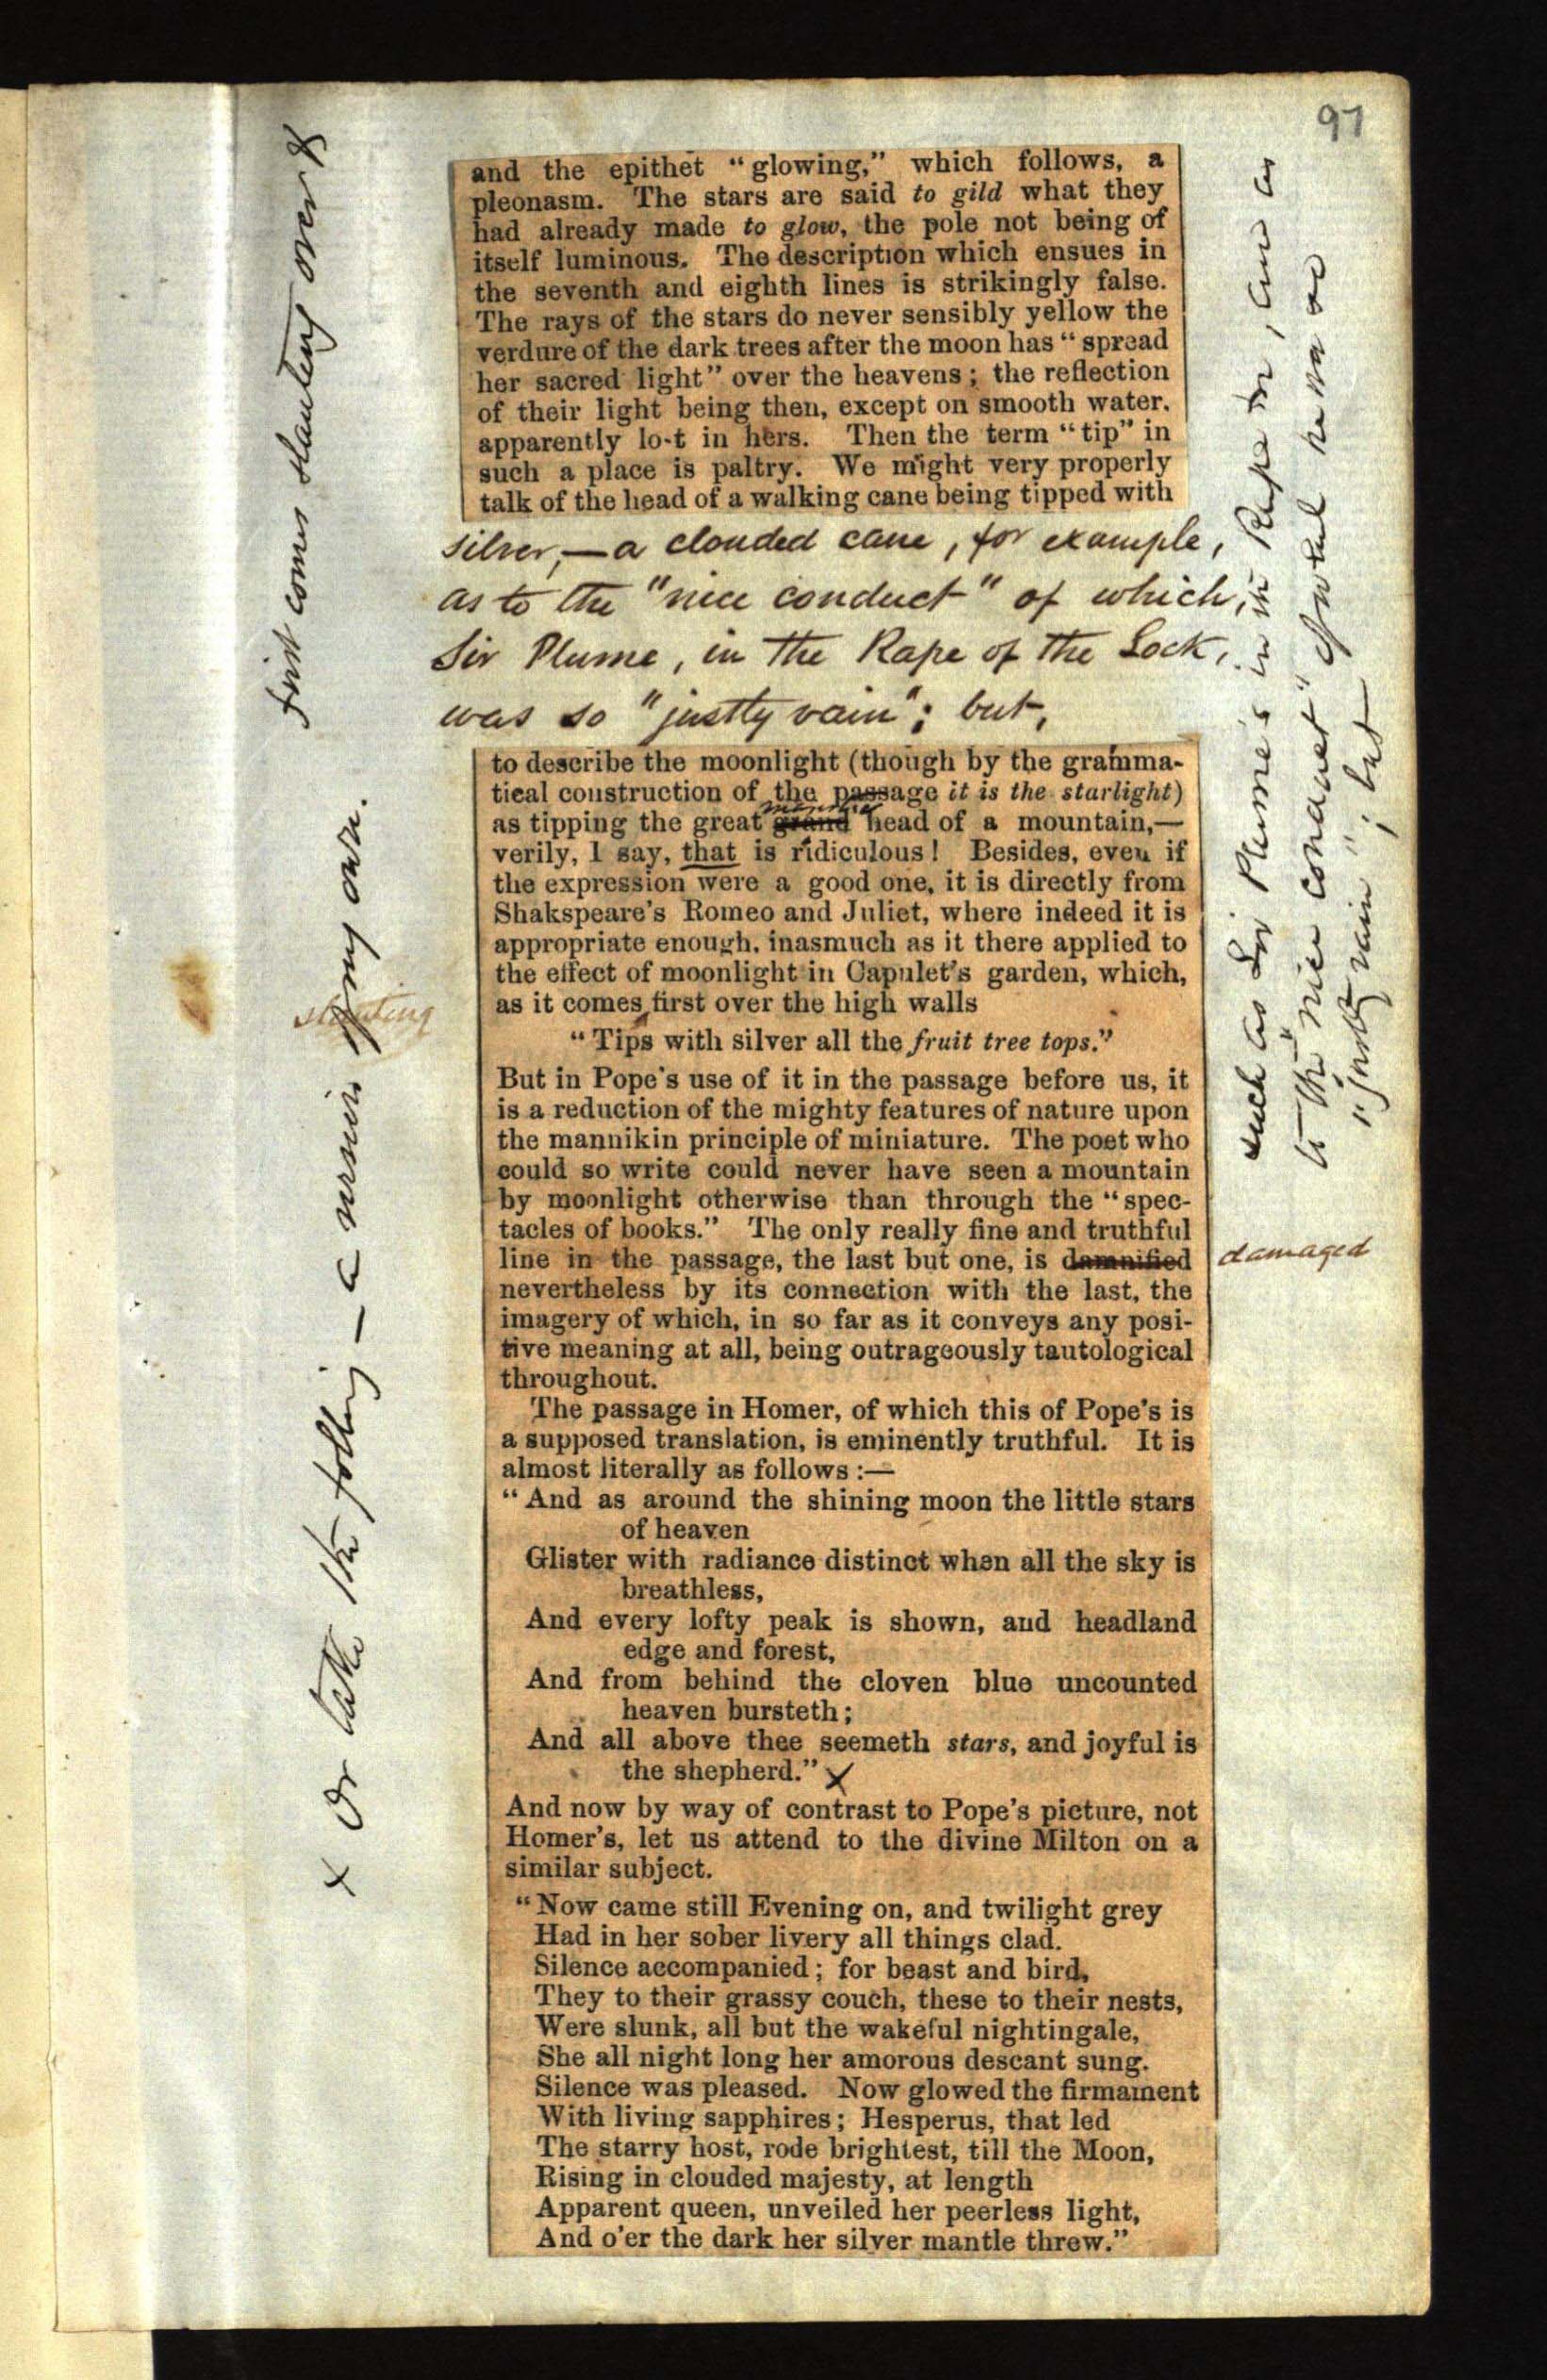 97
and the epithet "glowing," which follows, a
pleonasm. The stars are said to gild what they
had already made to glow, the pole not being of
itself luminous. The description which ensues in
the seventh and eighth lines is strikingly false.
The rays of the stars do never sensibly yellow the
verdure of the dark trees after the moon has "spread
her sacred light" over the heavens; the reflection
of their light being then, except on smooth water.
apparently lost in hers. Then the term "tip" in
such a place is paltry. We might very properly
talk of the head of a walking cane being tipped with
silver,—a clouded cane, for example,
as to the "nice conduct" of which,
Sir Plume, in the Rape of the Lock,
was so "justly vain"; but,
to describe the moonlight (though by the gramma-
tical construction of the passage it is the starlight)
as tipping the great grand head of a mountain,—
verily, I say, that is ridiculous! Besides, even if
the expression were a good one, it is directly from
Shakspeare's Romeo and Juliet, where indeed it is
appropriate enough, inasmuch as it there applied to
the effect of moonlight in Capulet's garden, which,
as it comes first over the high walls
"Tips with silver all the fruit tree tops."
But in Pope's use of it in the passage before us, it
is a reduction of the mighty features of nature upon
the mannikin principle of miniature. The poet who
could so write could never have seen a mountain
by moonlight otherwise than through the "spec-
tacles of books." The only really fine and truthful
line in the passage, the last but one, is damnified
nevertheless by its connection with the last, the
imagery of which, in so far as it conveys any posi-
tive meaning at all, being outrageously tautological
throughout.
The passage in Homer, of which this of Pope's is
a supposed translation, is eminently truthful. It is
almost literally as follows:—
"And as around the shining moon the little stars
of heaven
Glister with radiance distinct when all the sky is
breathless,
And every lofty peak is shown, and headland
edge and forest,
And from behind the cloven blue uncounted
heaven bursteth;
And all above thee seemeth stars, and joyful is
the shepherd." x
And now by way of contrast to Pope's picture, not
Homer's, let us attend to the divine Milton on a
similar subject.
"Now came still Evening on, and twilight grey
Had in her sober livery all things clad.
Silence accompanied; for beast and bird,
They to their grassy couch, these to their nests,
Were slunk, all but the wakeful nightingale,
She all night long her amorous descant sung.
Silence was pleased. Now glowed the firmament
With living sapphires; Hesperus, that led
The starry host, rode brightest, till the Moon,
Rising in clouded majesty, at length
Apparent queen, unveiled her peerless light,
And o'er the dark her silver mantle threw."
first comes slanting over &
x Or take the follg — a version of my own.
slanting
such as Sir Plume's in the Rape
to the "nice conduct" of which he was so
"justly vain"; but
damaged